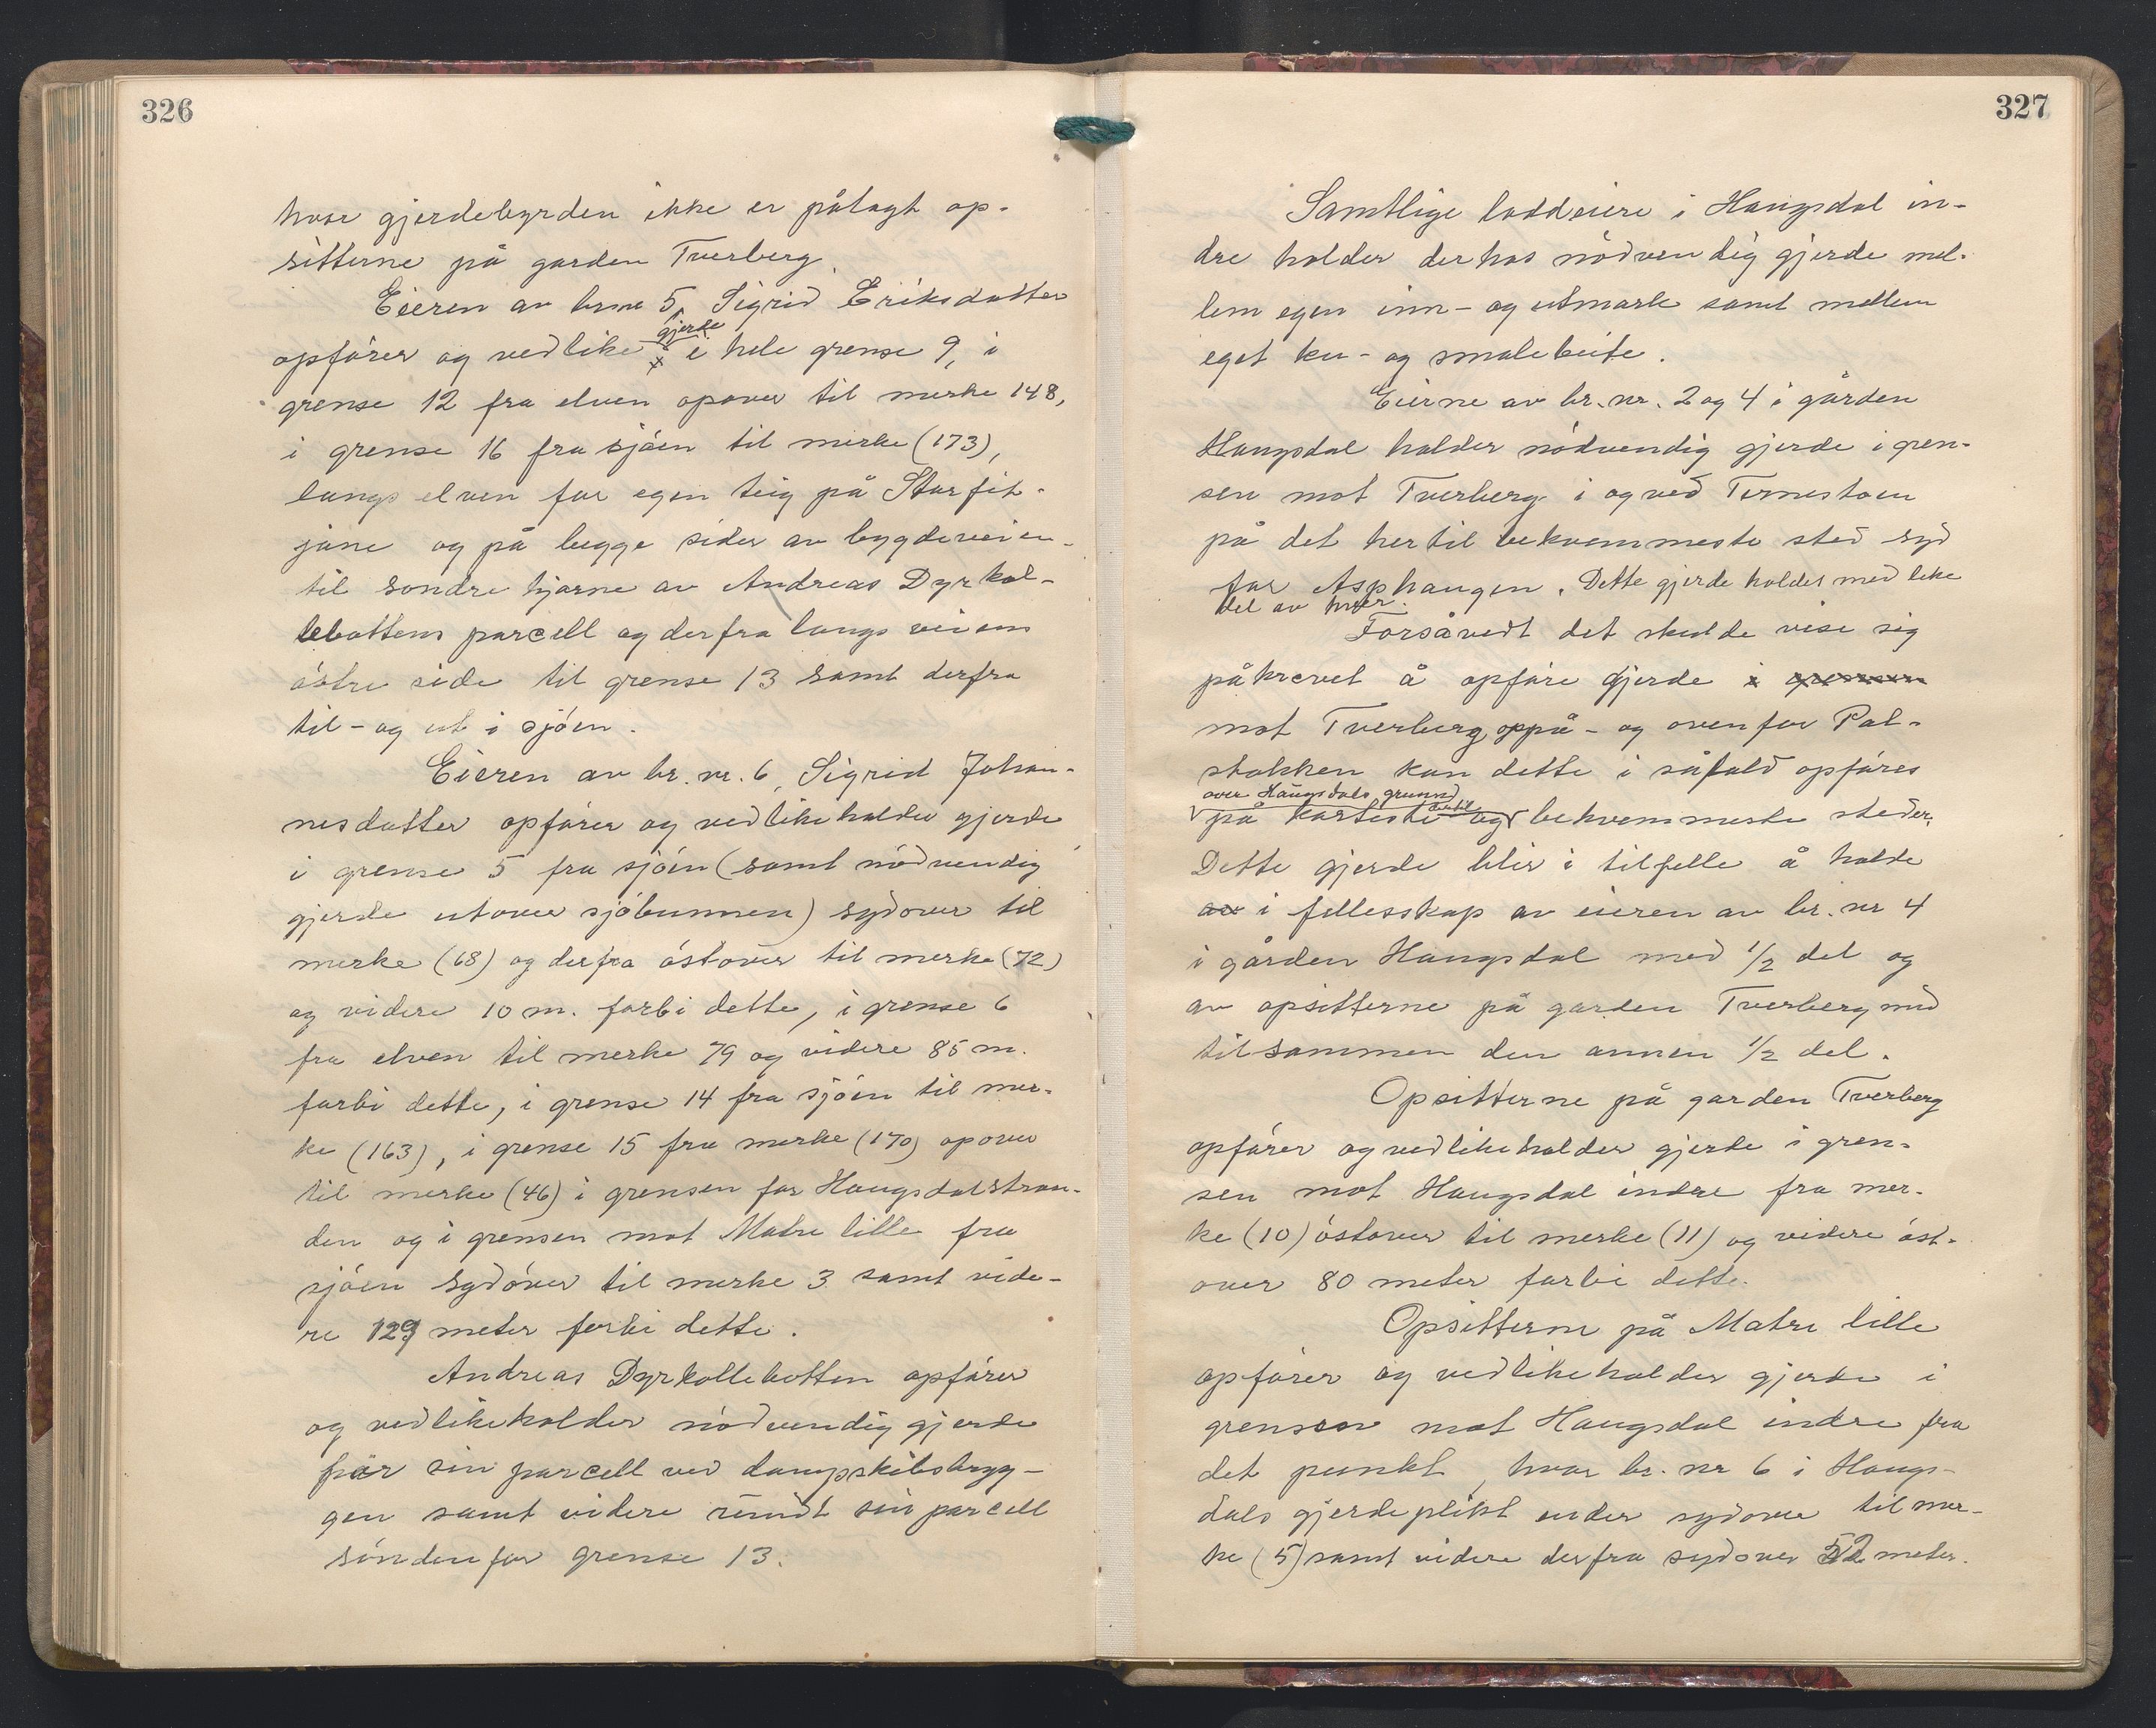 326
hvor gjerdebyrden ikke er pålagt op-
sitterne på garden Tverberg.
Eieren av brnr 5, Sigrid Eriksdatter
gjerde
opförer og vedlike x i hele grense 9, i
grense 12 fra elven opover til merke 148,
i grense 16 fra sjöen til merke (173),
langs elven for egen teig på Storfit-
jane og på begge sider av bygdeveien
til söndre hjörne av Andreas Dyrkol-
lebottens parcell og derfra langs veiens
östre side til grense 13 samt derfra
til- og ut i sjöen.
Eieren av br. nr. 6, Sigrid Johan-
nesdatter opförer og vedlikeholder gjerde
i grense 5 fra sjöen (samt nödvendig
gjerde utover sjöbunnen) sydover til
merke (68) og derfra östover til merke (72)
og videre 10 m. forbi dette, i grense 6
fra elven til merke 79 og videre 85 m.
forbi dette, i grense 14 fra sjöen til mer-
ke (163), i grense 15 fra merke (170) opover
til merke (46) i grensen for Haugsdalstran-
den og i grensen mot Matre lille fra
sjöen sydover til merke 3 samt vide-
re 129 meter forbi dette.
Andreas Dyrkollebotten opförer
og vedlikeholder nödvendig gjerde
for sin parcell ved dampskibsbryg-
gen samt videre rundt sin parcell
sönden for grense 13.
327
Samtlige loddeiere i Haugsdal in-
dre holder derhos nödvendig gjerde mel-
lem egen inn- og utmark samt mellem
eget ku- og smalebeite.
Eierne av br. nr. 2 og 4 i gården
Haugsdal holder nödvendig gjerde i gren-
sen mot Tverberg i og ved Ternestöen
på det hertil bekvemmeste sted syd
for Asphaugen. Dette gjerde holdes med like
del av hver.
Forsåvedt det skulde vise sig
påkrevet å opföre gjerde i grensen
mot Tverberg oppå- og ovenfor Pål-
stokken kan dette i såfald opföres
over Haugsdals grunn
dertil
på korteste og bekvemmeste steder.
Dette gjerde blir i tilfelle å holde
av i fellesskap av eieren av br. nr 4
i gården Haugsdal med 1/2 del og
av opsitterne på garden Tverberg med
tilsammen den annen 1/2 del.
Opsitterne på garden Tverberg
opförer og vedlikeholder gjerde i gren-
sen mot Haugsdal indre fra mer-
ke (10) östover til merke (11) og videre öst-
over 80 meter forbi dette.
Opsitterne på Matre lille
opförer og vedlikeholder gjerde i
grensen mot Haugsdal indre fra
det punkt, hvor br. nr 6 i Haugs-
dals gjerdeplikt ender sydover til mer-
ke (5) samt videre derfra sydover 52 meter.